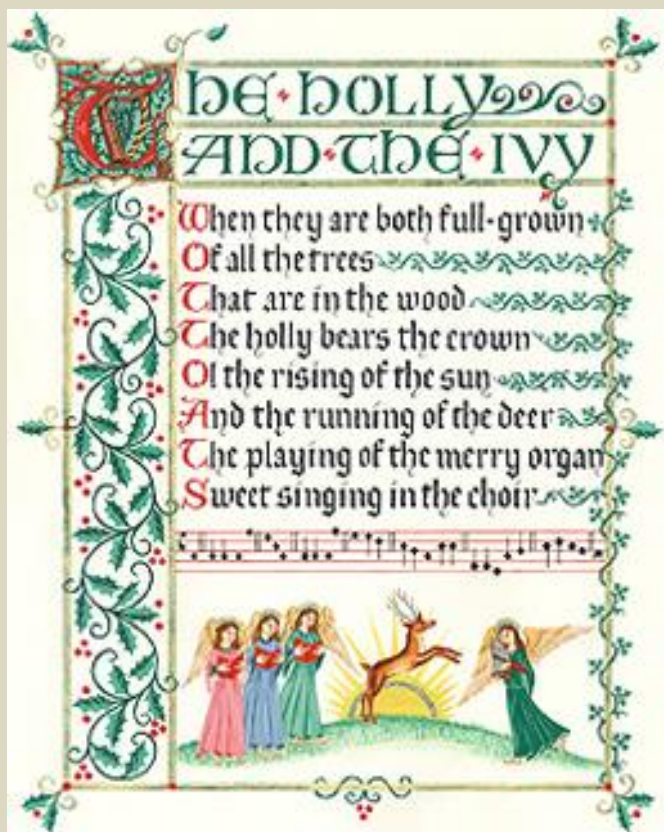 THE·HOLLY
AND·THE·IVY
When they are both full-grown
Of all the trees
That are in the wood
The holly bears the crown
O! the rising of the sun
And the running of the deer
The playing of the merry organ
Sweet singing in the choir